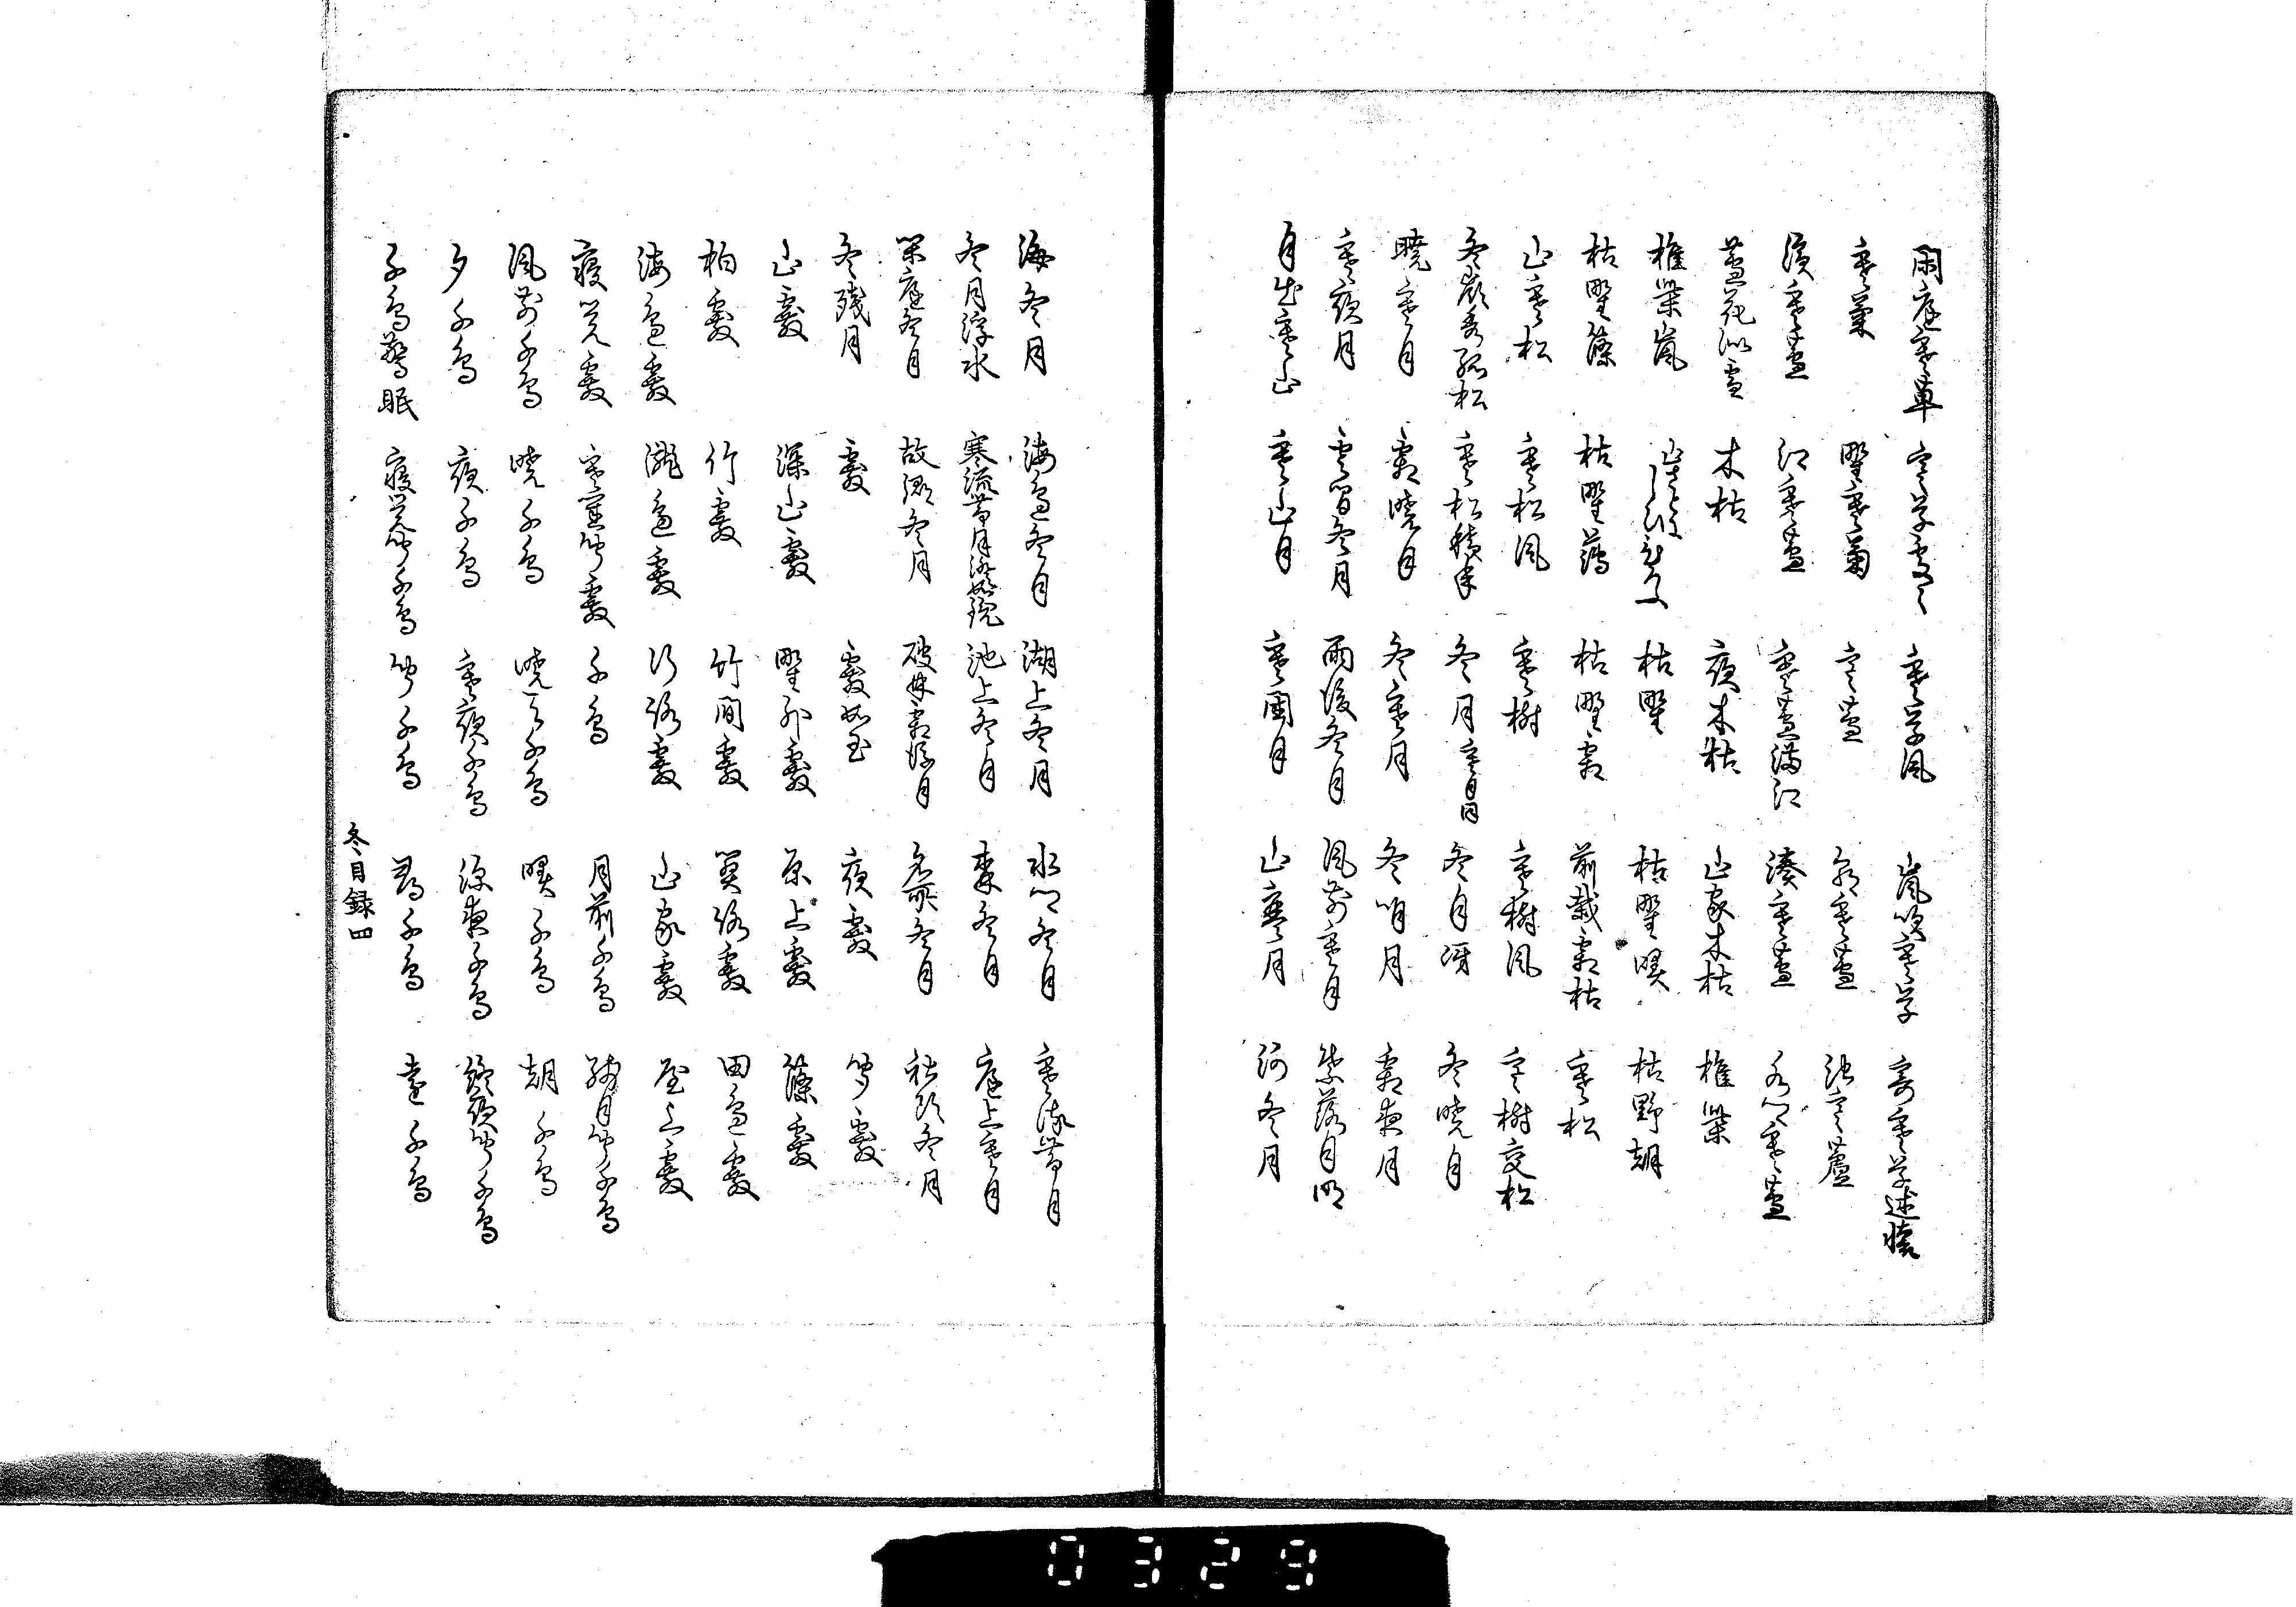 閑庭寒草 寒草霜 寒草風 嵐吹寒草 寄寒草述懐
寒菊 野寒菊 寒蘆 寒蘆 江寒蘆
濱寒蘆 江寒蘆 寒蘆満江 湊寒蘆 水郷寒蘆
蘆花似雪 木枯 夜木枯 山家木枯 椎柴
椎柴嵐 枯野 枯野曙 枯野朝
枯野篠 枯野薄 枯野霜 前栽霜枯 寒松
山寒松 寒松風 寒樹 寒樹風 寒樹交松
冬嶺秀孤松 寒松積年 冬月 寒月同 冬月冴 冬暁月
暁寒月 霜暁月 冬寒月 冬明月 霜夜月
寒夜月 雲間冬月 雨後冬月 風前寒月 葉落月明
月出寒山 寒山月 寒閨月 山寒月 河冬月
海冬月 海邊冬月 湖上冬月 水郷冬月 寒流帯月
冬月浮水 寒流帯月澄如鏡 池上冬月 杜冬月 庭上寒月
閑庭冬月 故郷冬月 破林霜後月 名所冬月 社頭冬月
冬残月 霰 霰如玉 夜霰 聞霰
山霰 深山霰 野外霰 原上霰 篠霰
柏霰 竹霰 竹間霰 篶路霰 田邊霰
海邊霰 瀧邊霰 行路霰 山家霰 屋上霰
寝覚霰 寒窓聞霰 千鳥 月前千鳥 残月聞千鳥
風前千鳥 暁千鳥 暁天千鳥 曙千鳥 朝千鳥
夕千鳥 夜千鳥 寒夜千鳥 深夜千鳥 終夜聞千鳥
千鳥驚眠 寝覚聞千鳥 聞千鳥 群千鳥 遠千鳥
冬目録 四
0329